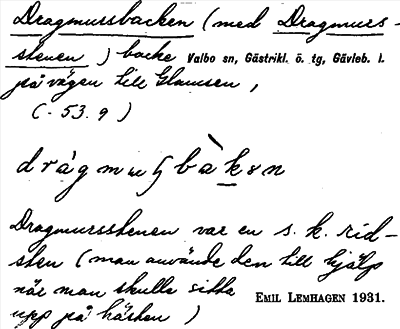 Dragmursbacken (med Dragmurs-
stenen) backe Valbo sn, Gästrikl. ö. tg, Gävleb. l.
på vägen till
(-53.9)
Dragmursstenen var en s. k. rid-
sten (man använde den till hjälp
när man skulle sitta
upp på hästen) EMIL LEMHAGEN 1931.